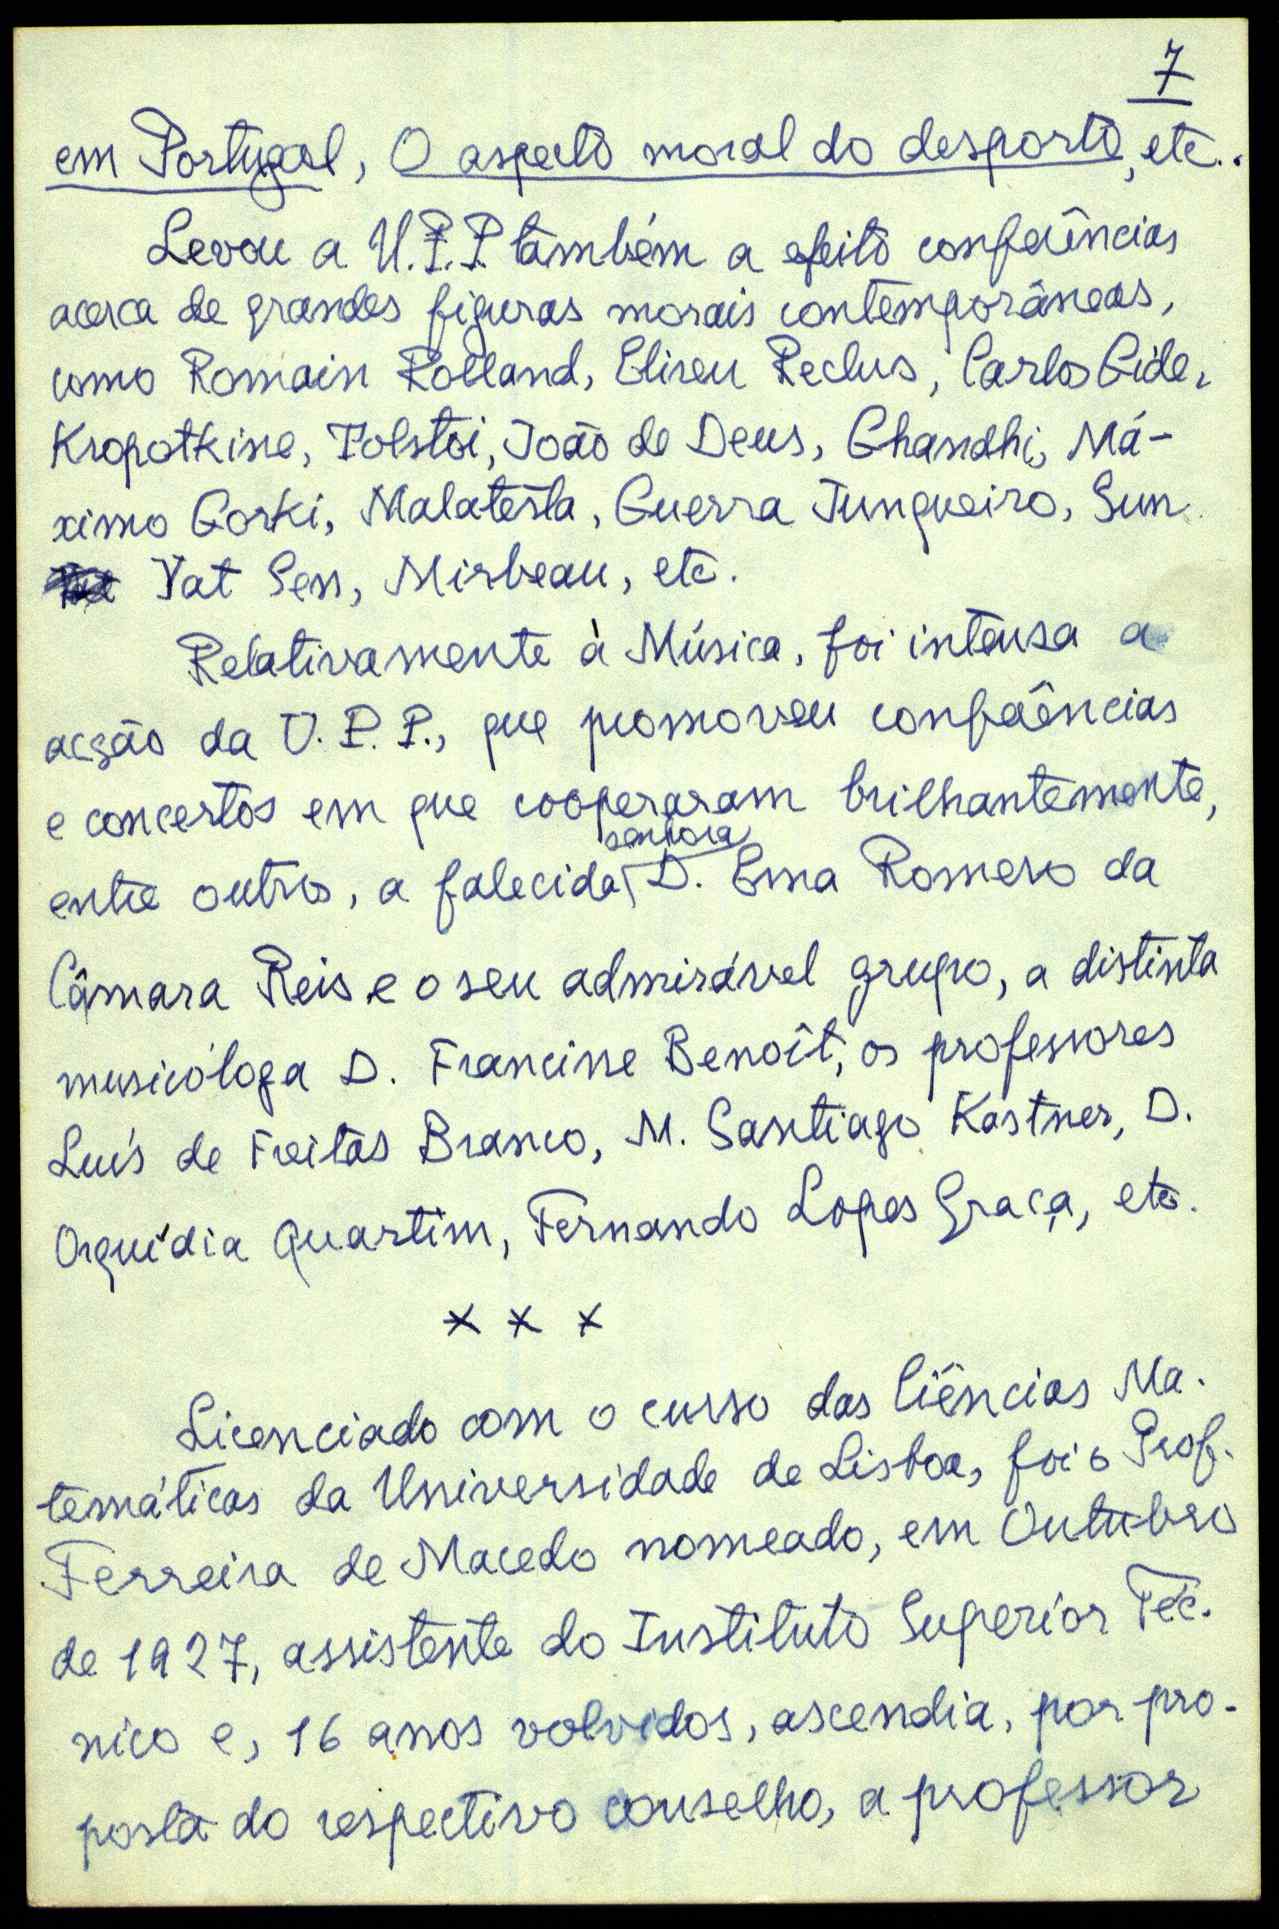 7
em Portugal, O aspecto moral do desporto, etc..
Levou a U.P.P. também a efeito conferências
acerca de grandes figuras morais contemporâneas,
como Romain Rolland, Eliseu Reclus, Carlos Gide,
Kropotkine, Tolstoi, João de Deus, Ghandhi, Má-
ximo Gorki, Malatesta, Guerra Junqueiro, Sun
Yat Sen, Mirbeau, etc.
Relativamente à Música, foi intensa a
acção da U.P.P., que promoveu conferências
e concertos em que cooperaram brilhantemente,
senhora
entre outros, a falecida D. Ema Romero da
Câmara Reis e o seu admirável grupo, a distinta
musicóloga D. Francine Benoît, os professores
Luís de Freitas Branco, M. Santiago Kastner, D.
Orquídia Quartim, Fernando Lopes Graça, etc.
* * *
Licenciado com o curso das Ciências Ma-
temáticas da Universidade de Lisboa, foi o Prof.
Ferreira de Macedo nomeado, em Outubro
de 1927, assistente do Instituto Superior Téc-
nico e, 16 anos volvidos, ascendia, por pro-
posta do respectivo conselho, a professor